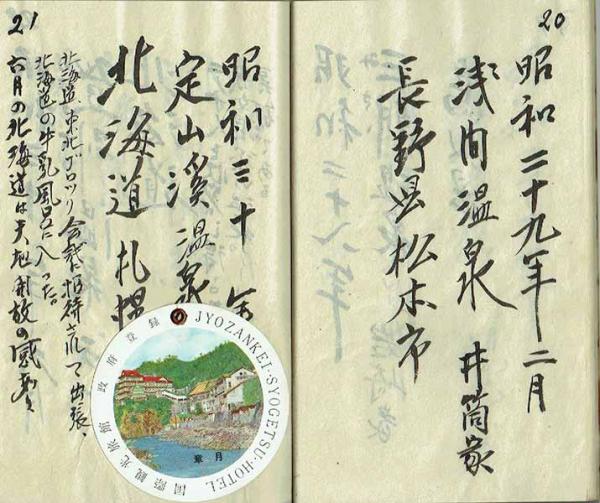 20
昭和二十九年二月
浅間温泉 井筒家
長野県松本市
21
昭和三十 年
定山溪温泉
北海道 札幌
北海道、東北ブロック会議に招待されて出張、
北海道の牛乳風呂に入った。
六月の北海道は天地開放の感
JYOZANKEI・SYOGETSU・HOTEL
国際観光旅館 政府登録
章月